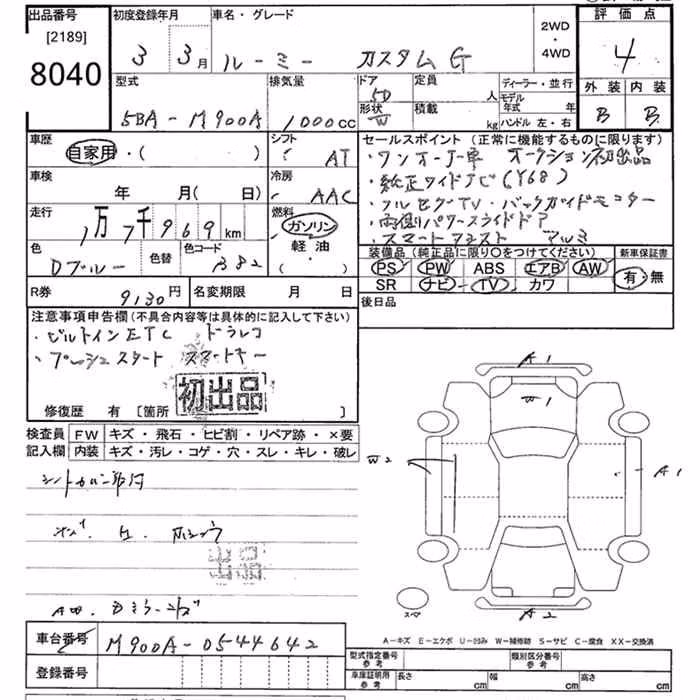 出品番号 初度登録年月 車名・グレード 2WD・4WD 評価点
[2189]
8040 3 3月 ルーミー カスタムG 4
型式 排気量 ドア 5D 定員 人 ディーラー・並行 外装 内装
5BA-M900A 1000cc 形状 W 積載 kg モデル年式 年 B B
ハンドル 左・右
車歴 自家用・( ) シフト AT
セールスポイント (正常に機能するものに限ります)
・ワンオーナー車 オークション初出品
・純正ワイドナビ(Y68)
・フルセグTV・バックガイドモニター
・両側パワースライドドア
・スマートアシスト アルミ
車検 年 月(日) 冷房 AAC
走行 1万7千969km 燃料 ガソリン 軽油・( )
色 Dブルー 色替 色コード B82
装備品 (純正品に限り○をつけてください) 新車保証書
PS PW ABS エアB AW 有・無
SR ナビ TV カワ
R券 9130円 名変期限 月 日 後日品
注意事項申告欄(不具合内容等は具体的に記入して下さい)
・ビルトインETC ドラレコ
・プッシュスタート スマートキー
初出品
修復歴 有 [箇所 ]
検査員記入欄 FW キズ・飛石・ヒビ割・リペア跡・×要
内装 キズ・汚レ・コゲ・穴・スレ・キレ・破レ
A1
W1
W2
A1
A2
スペア
出品
A-キズ E-エクボ U-凹み W-補修跡 S-サビ C-腐食 XX-交換済
車台番号 M900A-0544642
登録番号
型式指定番号 参考 類別区分番号 参考
車庫証明用 参考 長さ cm 幅 cm 高さ cm